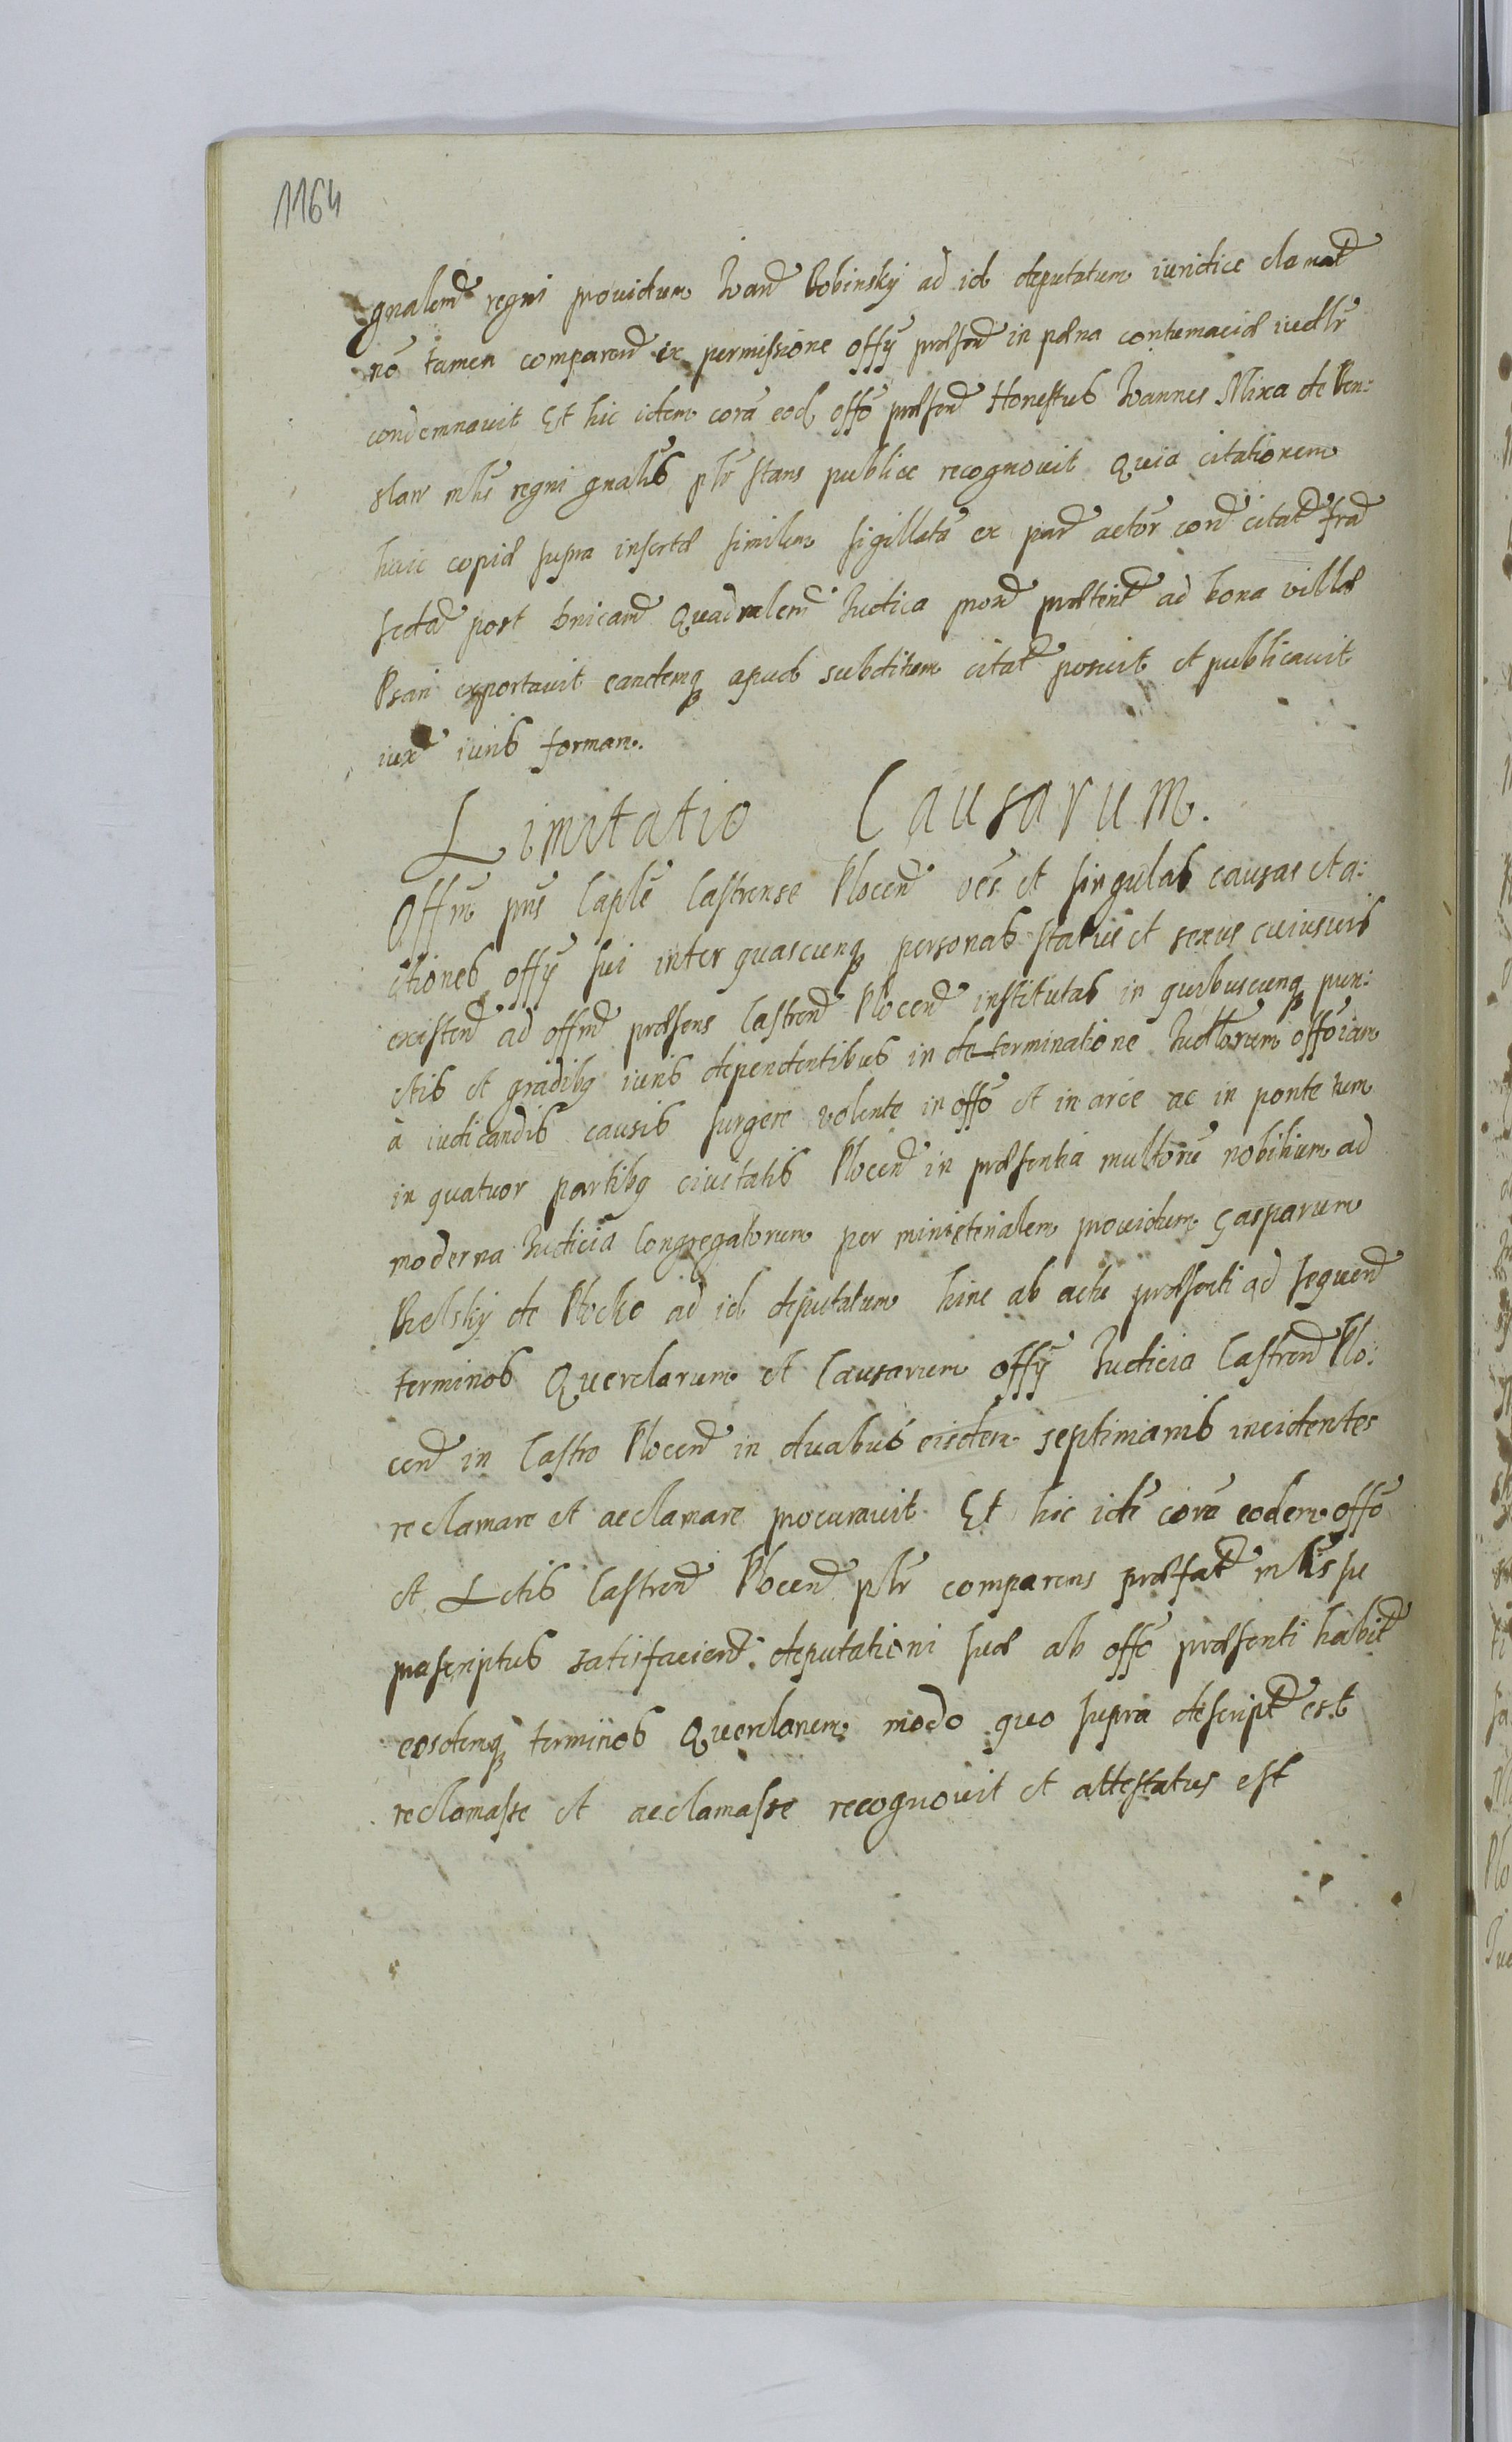 1164
gnalem regni providum Ioan Bobinsky ad id deputatum iuridice clamat
nō tamen comparen ex permissione offÿ præsen in pæna contumaciæ iudlr
condemnavit Et hic idem corā eod offō præsen Honestus Ioannes Mixa de
mlis regni gnalis plr stans publice recognovit Quia citationem
huic copiæ supra insertæ similem sigillatā ex par actor con citat fra
post Quadralem Iudica prox præterit ad bona villæ
Psari exportavit eandemq apud subditum citat posuit et publicavit
iux iuris formam.
Limitatio Causarum.
Offm pns Caplē Castrense Plocen oēs et singulas causas et a:
ctiones offÿ sui inter quascunq personas status et sexus cuiusvis
existen ad offm præsens Castren Plocen institutas in quibuscunq pun:
ctis et gradibq iuris dependentibus in determinatione Iudtorum offō iam
à iudicandis causis surgere volente in offō et in arce ac in ponte tum
in quatuor partibq civitatis Plocen in præsentia multorū nobilium ad
moderna Iudicia Congregatorum per ministerialem providum Gasparum
Bielsky de Plocko ad id deputatum hinc ab actu præsenti ad sequen
terminos Querelarum et Causarum offÿ Iudicia Castren Plo:
cen in Castro Plocen in duabus eisdem septimanis incidentes
reclamare et acclamare procuravit Et hic idē corā eodem offō
et Actis Castren Plocen plr comparens præfat mlis su
prascriptus satisfacien deputationi suæ ab offō præsenti habit
eosdemq terminos Querelarum modo quo supra descript est
reclamasse et acclamasse recognovit et attestatus est